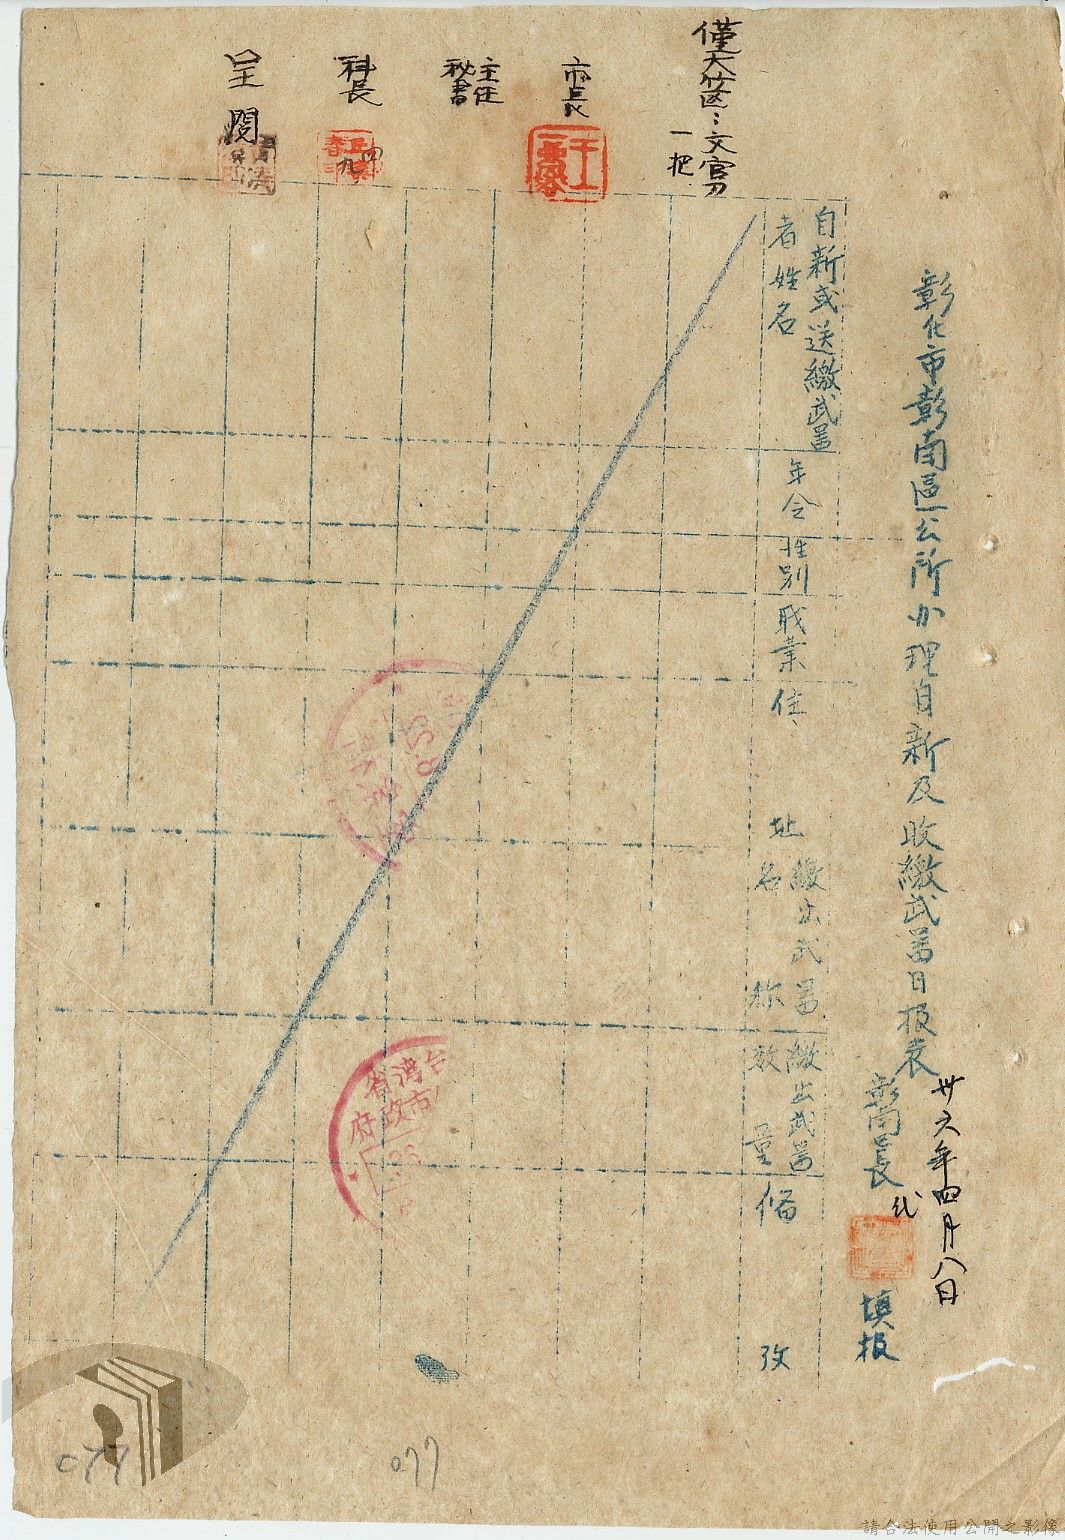 彰化市彰南區公所办理自新及收繳武器日报表
卅六年四月八日
彰南區長
代
填报
自新或送繳武器
者姓名
年令
性別
职業
住址
繳出武器
名称
繳出武器
数量
備攷
僅大竹区：文官刀
一把
市長
主任
秘書
科長
四
九
呈閱
台湾省
市政府
36
077
077
請合法使用公開之影像